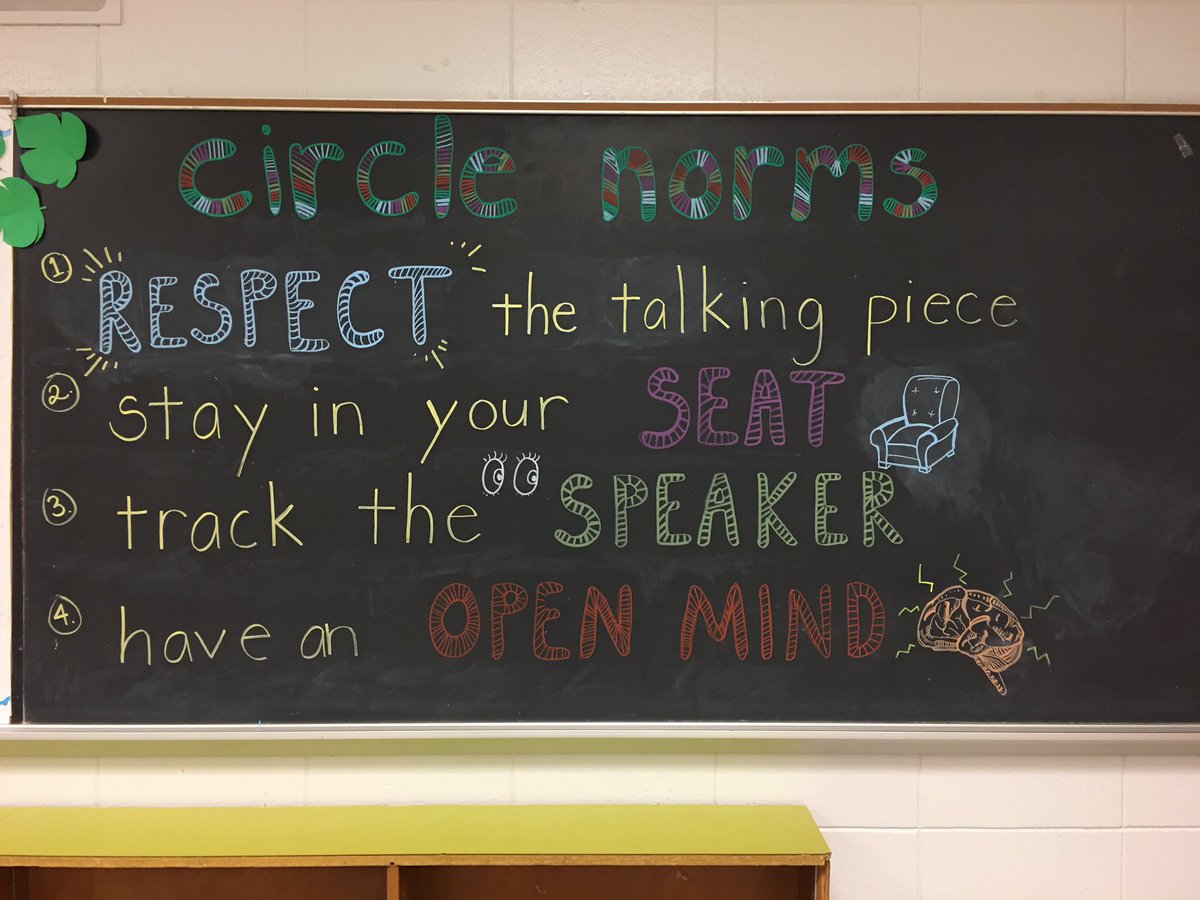 circle norms
1 RESPECT the talking piece
2. stay in your SEAT
3. track the SPEAKER
4. have an OPEN MIND